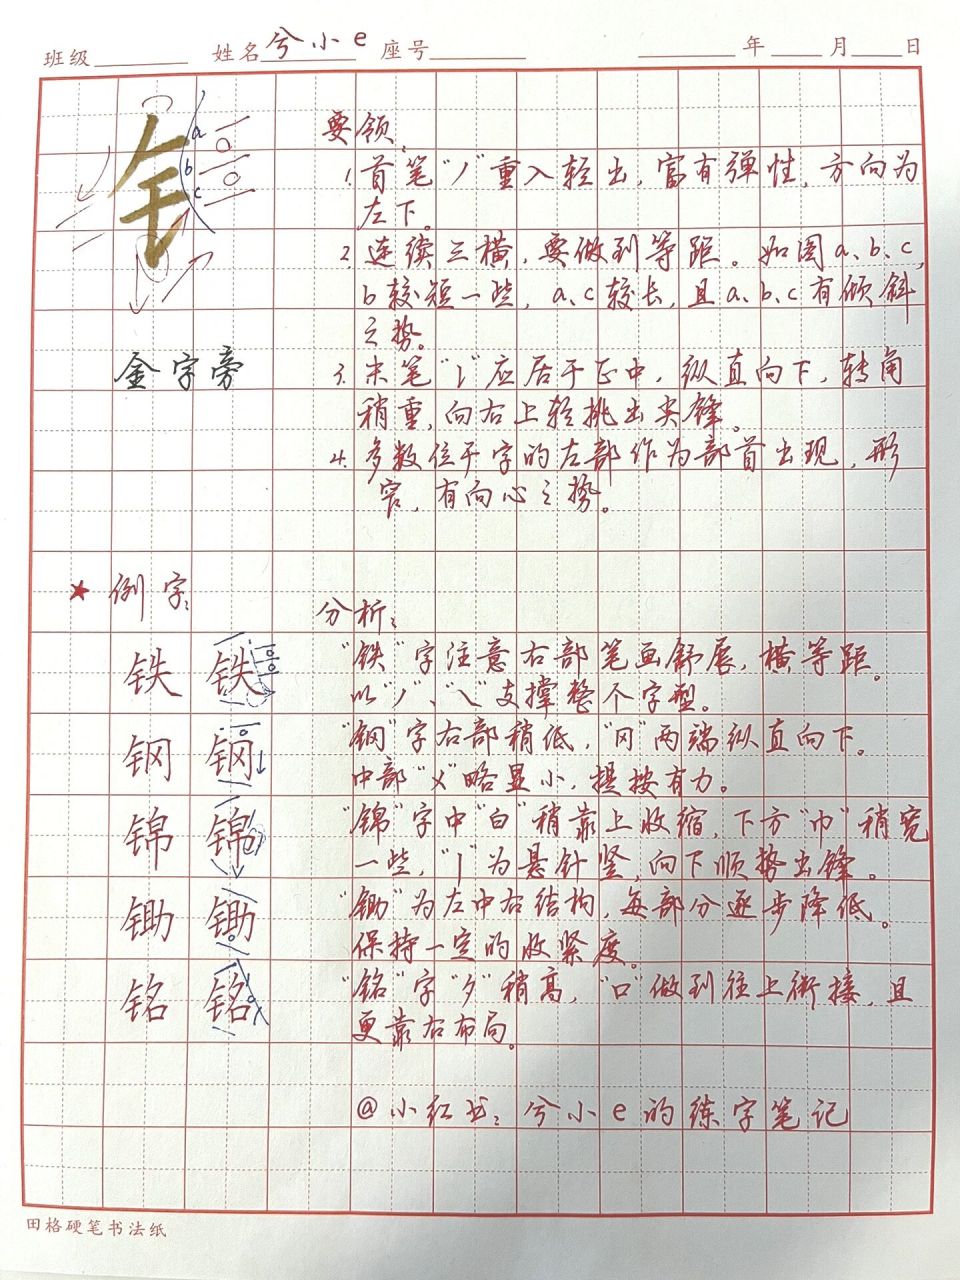 班级 姓名 兮小e 座号 年 月 日
a
b
c
金字旁
要领:
1. 首笔“丿”重入轻出,富有弹性,方向为
左下。
2. 连续三横,要做到等距。如图a、b、c,
b较短一些,a、c较长,且a、b、c有倾斜
之势。
3. 末笔“㇙”应居于正中,纵直向下,转角
稍重,向右上轻挑出尖锋。
4. 多数位于字的左部作为部首出现,形
窄,有向心之势。
★ 例字:
分析:
铁 铁
“铁”字注意右部笔画舒展,横等距。
以“丿”、“㇏”支撑整个字型。
钢 钢
“钢”字右部稍低,“冂”两端纵直向下。
中部“乂”略显小,提按有力。
锦 锦
“锦”字中“白”稍靠上收缩,下方“巾”稍宽
一些,“丨”为悬针竖,向下顺势出锋。
锄 锄
“锄”为左中右结构,每部分逐步降低。
保持一定的收紧度。
铭 铭
“铭”字“夕”稍高,“口”做到往上衔接,且
更靠右布局。
@小红书:兮小e的练字笔记
田格硬笔书法纸